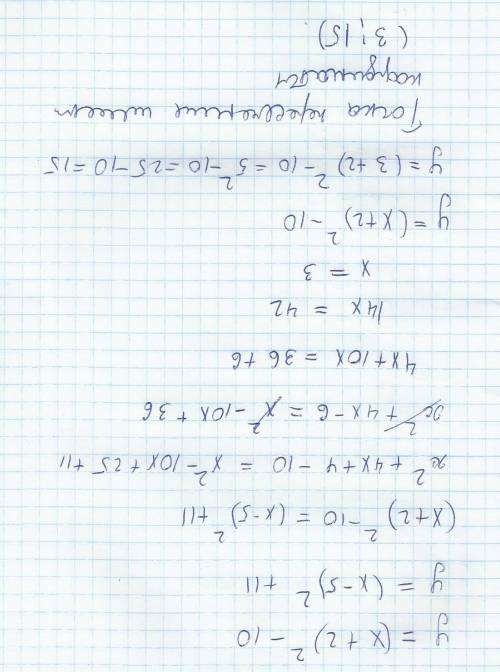 y = (x+2)² - 10
y = (x-5)² + 11
(x+2)² - 10 = (x-5)² + 11
x² + 4x + 4 - 10 = x² - 10x + 25 + 11
x² + 4x - 6 = x² - 10x + 36
4x + 10x = 36 + 6
14x = 42
x = 3
y = (x+2)² - 10
y = (3+2)² - 10 = 5² - 10 = 25 - 10 = 15
Точка пересечения имеет
координаты
(3; 15)